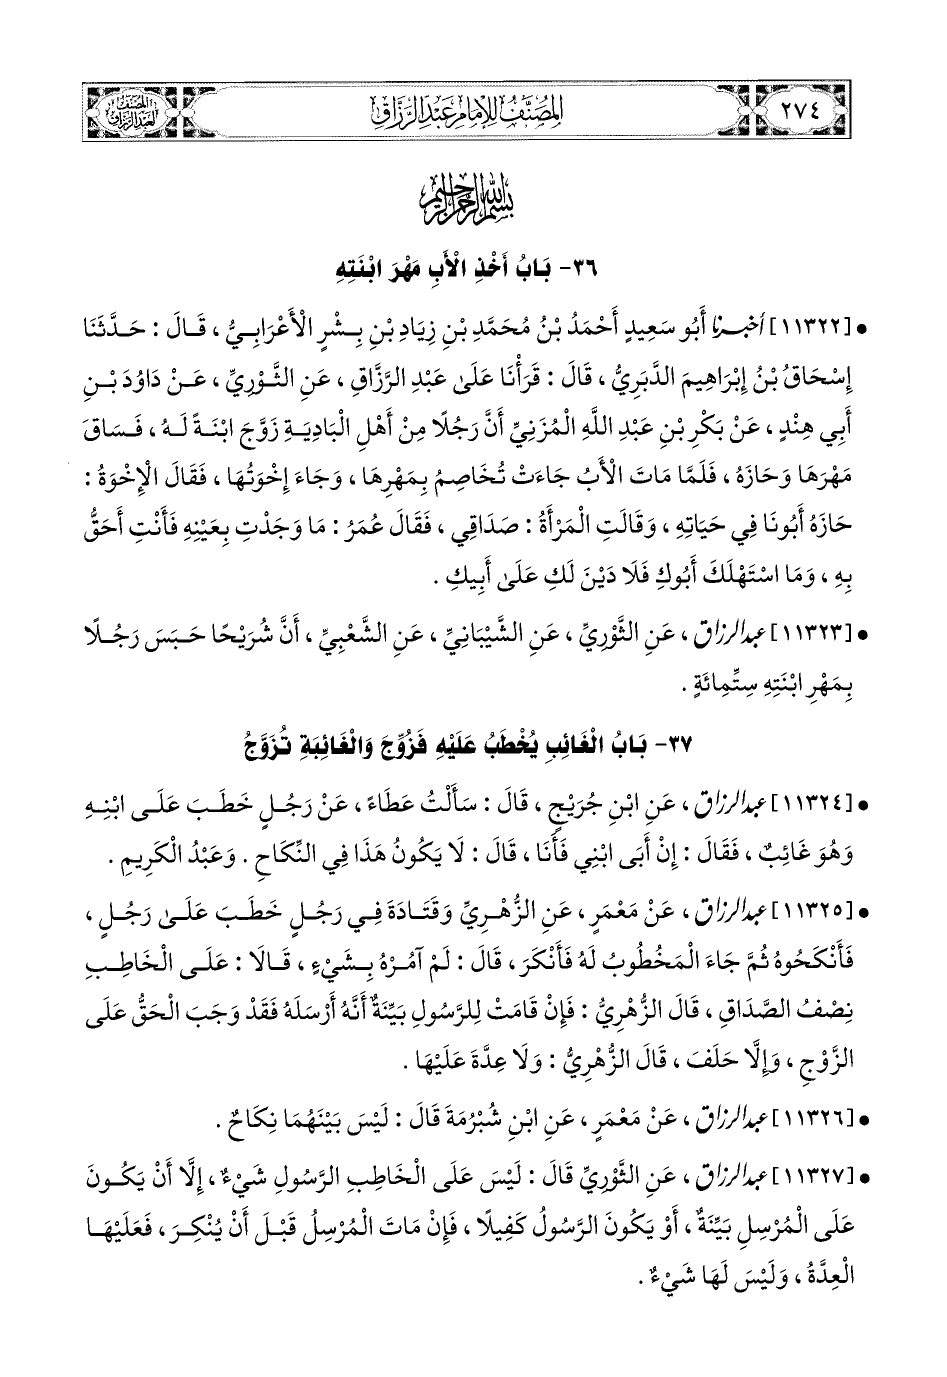 ٢٧٤
المُصَنَّفُ لِلْإِمَامِ عَبْدِ الرَّزَّاقِ
المصنف
لعبد الرزاق
بِسْمِ اللَّهِ الرَّحْمَنِ الرَّحِيمِ
٣٦- بَابُ أَخْذِ الْأَبِ مَهْرَ ابْنَتِهِ
• [١١٣٢٢] أخبرنا أَبُو سَعِيدٍ أَحْمَدُ بْنُ مُحَمَّدِ بْنِ زِيَادِ بْنِ بِشْرٍ الْأَعْرَابِيُّ ، قَالَ : حَدَّثَنَا
إِسْحَاقُ بْنُ إِبْرَاهِيمَ الدَّبَرِيُّ ، قَالَ : قَرَأْنَا عَلَى عَبْدِ الرَّزَّاقِ ، عَنِ الثَّوْرِيِّ ، عَنْ دَاوُدَ بْنِ
أَبِي هِنْدٍ ، عَنْ بَكْرِ بْنِ عَبْدِ اللَّهِ الْمُزَنِيِّ أَنَّ رَجُلًا مِنْ أَهْلِ الْبَادِيَةِ زَوَّجَ ابْنَةً لَهُ ، فَسَاقَ
مَهْرَهَا وَحَازَهُ ، فَلَمَّا مَاتَ الْأَبُ جَاءَتْ تُخَاصِمُ بِمَهْرِهَا ، وَجَاءَ إِخْوَتُهَا ، فَقَالَ الْإِخْوَةُ :
حَازَهُ أَبُونَا فِي حَيَاتِهِ ، وَقَالَتِ الْمَرْأَةُ : صَدَاقِي ، فَقَالَ عُمَرُ : مَا وَجَدْتِ بِعَيْنِهِ فَأَنْتِ أَحَقُّ
بِهِ ، وَمَا اسْتَهْلَكَ أَبُوكِ فَلَا دَيْنَ لَكِ عَلَى أَبِيكِ .
• [١١٣٢٣] عبد الرزاق ، عَنِ الثَّوْرِيِّ ، عَنِ الشَّيْبَانِيِّ ، عَنِ الشَّعْبِيِّ ، أَنَّ شُرَيْحًا حَبَسَ رَجُلًا
بِمَهْرِ ابْنَتِهِ سِتِّمِائَةٍ .
٣٧- بَابُ الْغَائِبِ يُخْطَبُ عَلَيْهِ فَزُوِّجَ وَالْغَائِبَةِ تُزَوَّجُ
• [١١٣٢٤] عبد الرزاق ، عَنِ ابْنِ جُرَيْجٍ ، قَالَ : سَأَلْتُ عَطَاءً ، عَنْ رَجُلٍ خَطَبَ عَلَى ابْنِهِ
وَهُوَ غَائِبٌ ، فَقَالَ : إِنْ أَبَى ابْنِي فَأَنَا ، قَالَ : لَا يَكُونُ هَذَا فِي النِّكَاحِ . وَعَبْدُ الْكَرِيمِ .
• [١١٣٢٥] عبد الرزاق ، عَنْ مَعْمَرٍ ، عَنِ الزُّهْرِيِّ وَقَتَادَةَ فِي رَجُلٍ خَطَبَ عَلَى رَجُلٍ ،
فَأَنْكَحُوهُ ثُمَّ جَاءَ الْمَخْطُوبُ لَهُ فَأَنْكَرَ ، قَالَ : لَمْ آمُرْهُ بِشَيْءٍ ، قَالَا : عَلَى الْخَاطِبِ
نِصْفُ الصَّدَاقِ ، قَالَ الزُّهْرِيُّ : فَإِنْ قَامَتْ لِلرَّسُولِ بَيِّنَةٌ أَنَّهُ أَرْسَلَهُ فَقَدْ وَجَبَ الْحَقُّ عَلَى
الزَّوْجِ ، وَإِلَّا حَلَفَ ، قَالَ الزُّهْرِيُّ : وَلَا عِدَّةَ عَلَيْهَا .
• [١١٣٢٦] عبد الرزاق ، عَنْ مَعْمَرٍ ، عَنِ ابْنِ شُبْرُمَةَ قَالَ : لَيْسَ بَيْنَهُمَا نِكَاحٌ .
• [١١٣٢٧] عبد الرزاق ، عَنِ الثَّوْرِيِّ قَالَ : لَيْسَ عَلَى الْخَاطِبِ الرَّسُولِ شَيْءٌ ، إِلَّا أَنْ يَكُونَ
عَلَى الْمُرْسِلِ بَيِّنَةٌ ، أَوْ يَكُونَ الرَّسُولُ كَفِيلًا ، فَإِنْ مَاتَ الْمُرْسِلُ قَبْلَ أَنْ يُنْكِرَ ، فَعَلَيْهَا
الْعِدَّةُ ، وَلَيْسَ لَهَا شَيْءٌ .